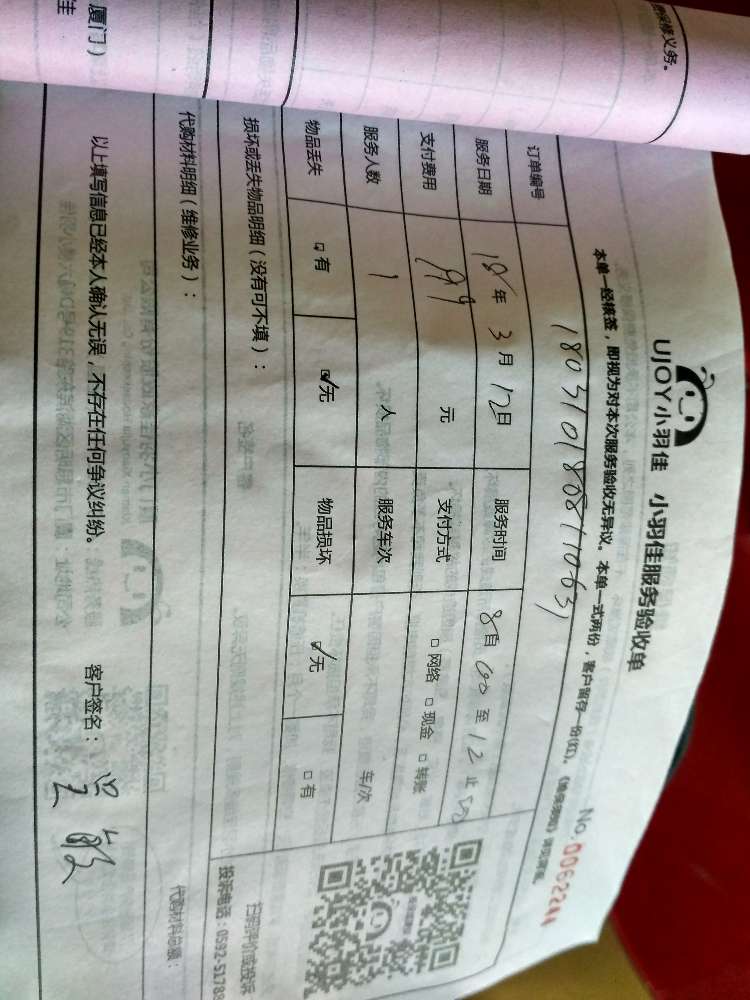 保修义务。
厦门）
佳
UJOY小羽佳 小羽佳服务验收单
No: 0062228
本单一经核签，即视为对本次服务验收无异议。本单一式两份，客户留存一份(红)。
订单编号
服务日期 18年3月12日 服务时间 8自00至12止50
支付费用 199 元 支付方式 □网络 □现金 □转账
服务人数 1 人 服务车次 车/次
物品丢失 □有 ☑无 物品损坏 ☑无 □有
损坏或丢失物品明细（没有可不填）：
扫码评价或投诉
投诉电话：0592-5178
代购材料明细（维修业务）：
代购材料总额：
以上填写信息已经本人确认无误，不存在任何争议纠纷。 客户签名：吴敏